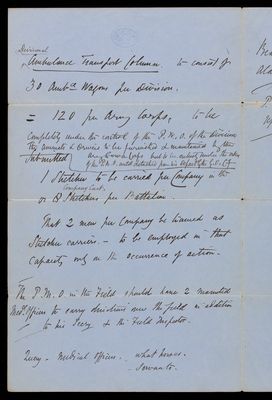 Divisional
Ambulance Transport Column. to consist of
30 Ambce Wagons per Division.
= 120 per Army Corps, to be
Completely under the control of the P.M.O. of the division
The Horses & Drivers to be furnished & maintained by the
Army Corps but to be under the orders
submitted
1 Stretcher to be carried per Company in the
Company Cart.
or 8 Stretchers per Battalion.
That 2 men per Company be trained as
Stretcher carriers - to be employed in that
capacity only on the occurrence of action.
The P.M.O. in the Field should have 2 mounted
Medl. Officers to carry directions over the field in addition
to his Secy & the Field Inspector.
Query - Medical Officers - what horses.
- Servants.